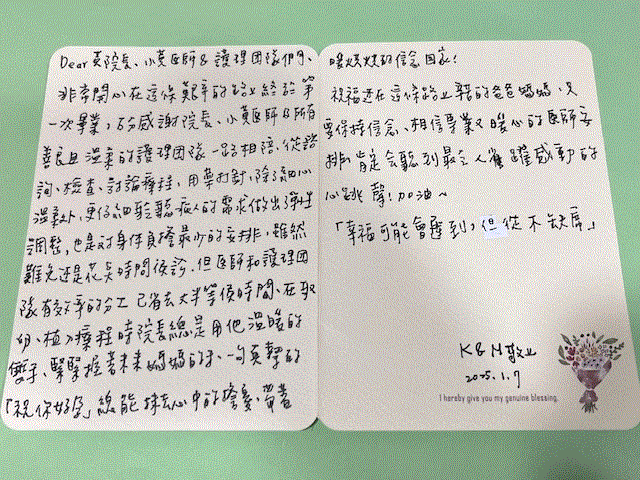 Dear 黃院長、小黃醫師&護理團隊們、
非常開心在這條艱辛的路上終於第
一次畢業,百分感謝院長、小黃醫師&所有
善良且溫柔的護理團隊一路相陪,從諮
詢、檢查、討論療程,用藥打針,除了細心
溫柔外,更仔細聆聽病人的需求做出彈性
調整,也是對身体負擔最少的安排,雖然
難免还是花長時間候診,但医師和護理团
隊有效率的分工已省去大半等候時間、在取
卵、植入療程時院長總是用他溫暖的
雙手、緊緊握著未來媽媽的手、一句真摯的
「祝你好孕」總能抹去心中的擔憂、帶著
暖烘烘的信念回家!
祝福还在這條路上的爸爸媽媽,又
要保持信念、相信專業又暖心的医師安
排,肯定会聽到最令人雀躍感動的
心跳聲!加油~
「幸福可能會遲到,但從不缺席」
K&M敬上
2025.1.7
I hereby give you my genuine blessing.